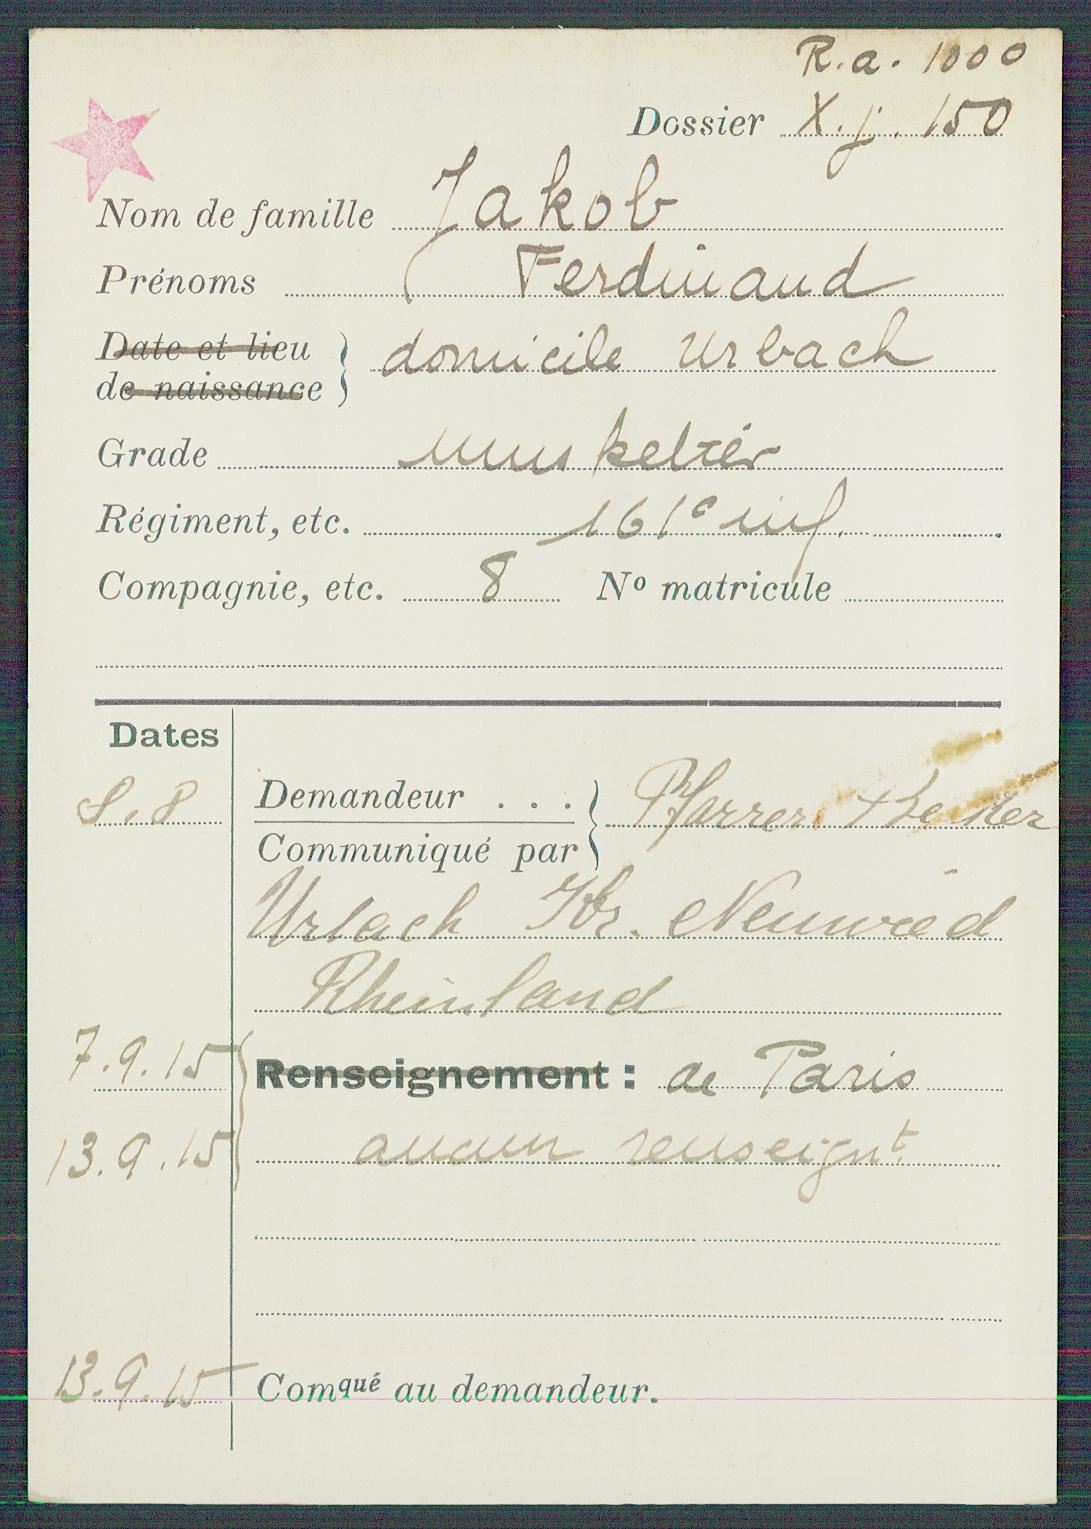 R.a. 1000
Dossier X.j. 150
Nom de famille Jakob
Prénoms Ferdinand
Date et lieu de naissance } domicile Urbach
Grade muskeltér
Régiment, etc. 161e inf.
Compagnie, etc. 8 No matricule
Dates
8.8 Demandeur . . . } Pfarrer Becker
Communiqué par
Urbach Kr. Neuwied
Rheinland
7.9.15 Renseignement : de Paris
13.9.15 aucun renseignt.
13.9.15 Comqué au demandeur.